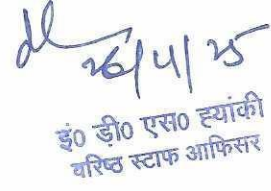 26/11/25
इं० डी० एस० ह्यांकी
वरिष्ठ स्टाफ आफिसर